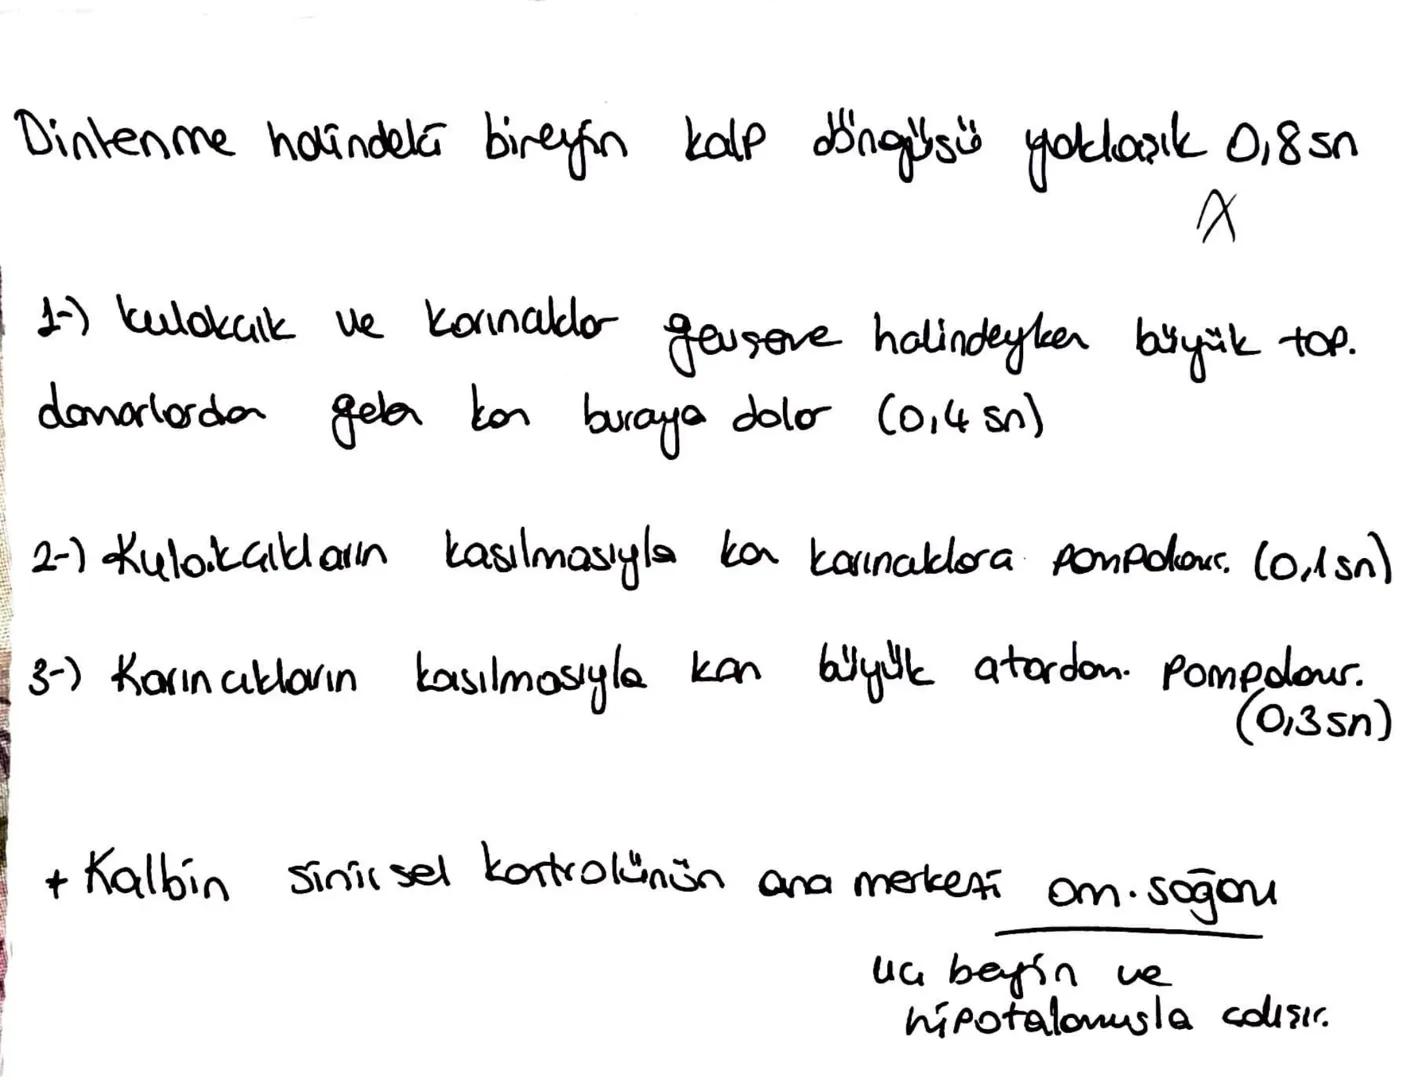 Dinlenme halindeki bireyin kalp döngüsü yaklaşık 0,8 sn
1-) kulakcık ve karıncıklar gevşeme halindeyken büyük top.
damarlardan gelen kan buraya dolar (0,4 sn)
2-) Kulakcıkların kasılmasıyla kan karıncıklara pompalanır. (0,1 sn)
3-) Karıncıkların kasılmasıyla kan büyük atardam. Pompalanır.
(0,3 sn)
+ Kalbin sinirsel kontrolünün ana merkezi om. soğanı
uç beyin ve
hipotalamusla çalışır.